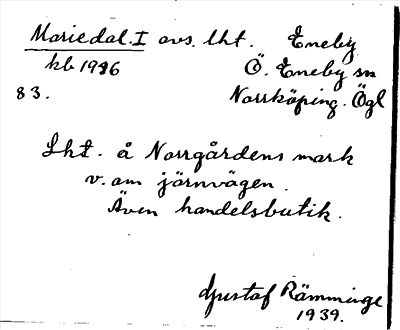 Mariedal. I avs. lht. Eneby
kb 1926 Ö. Eneby sn
83. Norrköping. Ögl
Lht. å Norrgårdens mark
v. om järnvägen.
Även handelsbutik.
Gustaf Rämminge
1939.